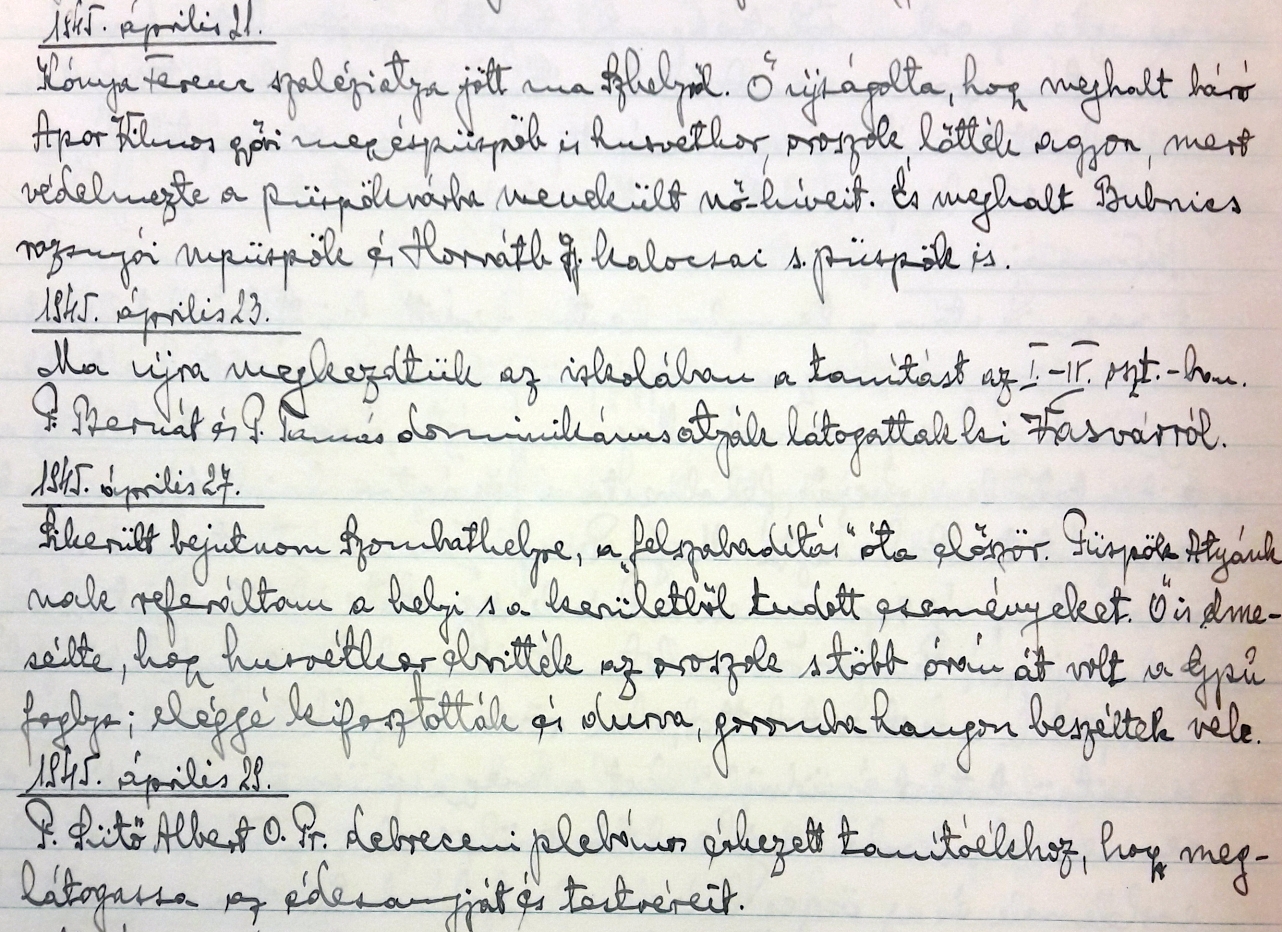 1945. április 21.
Kónya Ferenc szaléziatya jött ma Szhelyről. Ő újságolta, hogy meghalt báró
Apor Vilmos győri megéspüspök is husvétkor, oroszok lőtték agyon, mert
védelmezte a püspökvárba menekült nő-híveit. És meghalt Bubnics
rozsnyói mpüspök és Horváth Gy. kalocsai s. püspök is.
1945. április 23.
Ma újra megkezdtük az iskolában a tanítást az I.-IV. oszt.-ban.
P. Bernát és P. Tamás dominikánus atyák látogattak ki Vasvárról.
1945. április 27.
Sikerült bejutnom Szombathelyre, a „felszabadítás" óta először. Püspök Atyánk
nak referáltam a helyi s a kerületből tudott eseményeket. Ő is elme-
sélte, hogy husvétkor elvitték az oroszok s több órán át volt a Gpü
foglya; eléggé kifosztották és durva, goromba hangon beszéltek vele.
1945. április 29.
P. Sütő Albert O. Pr. debreceni plebános érkezett tanítóékhoz, hogy meg-
látogassa az édesanyját és testvéreit.